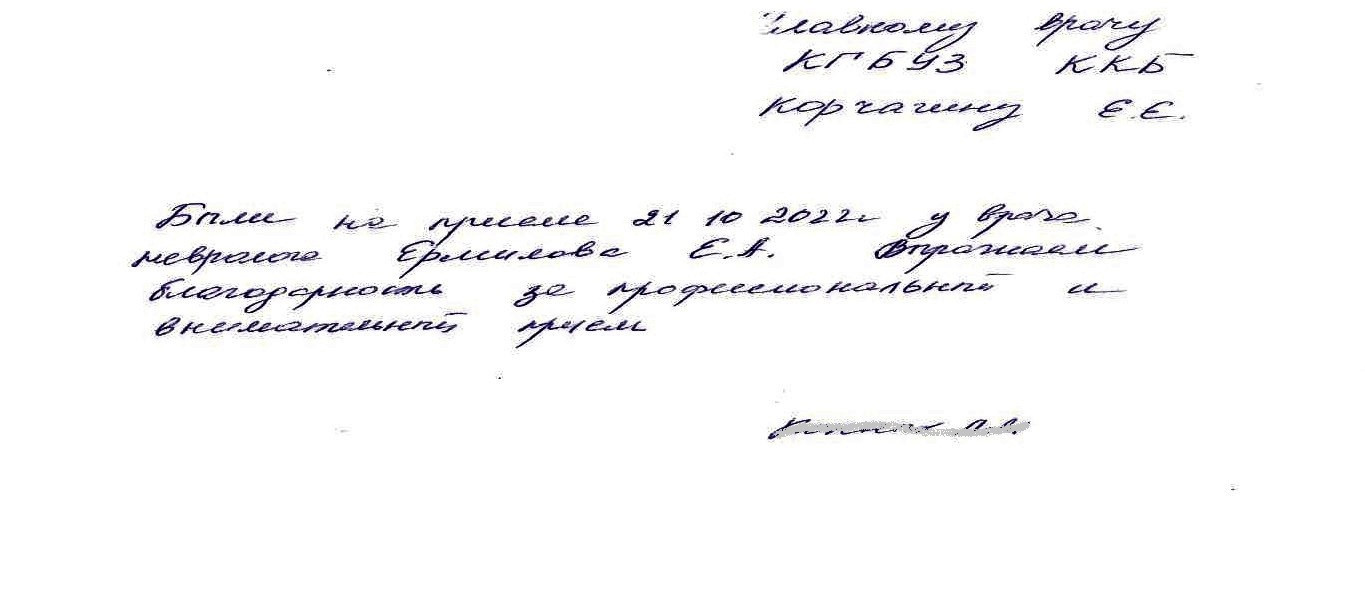 Главному врачу
КГБУЗ ККБ
Корчагину Е.Е.
Были на приеме 21 10 2022г у врача
невролога Ермилова Е.А. Выражаем
благодарность за профессиональный и
внимательный прием